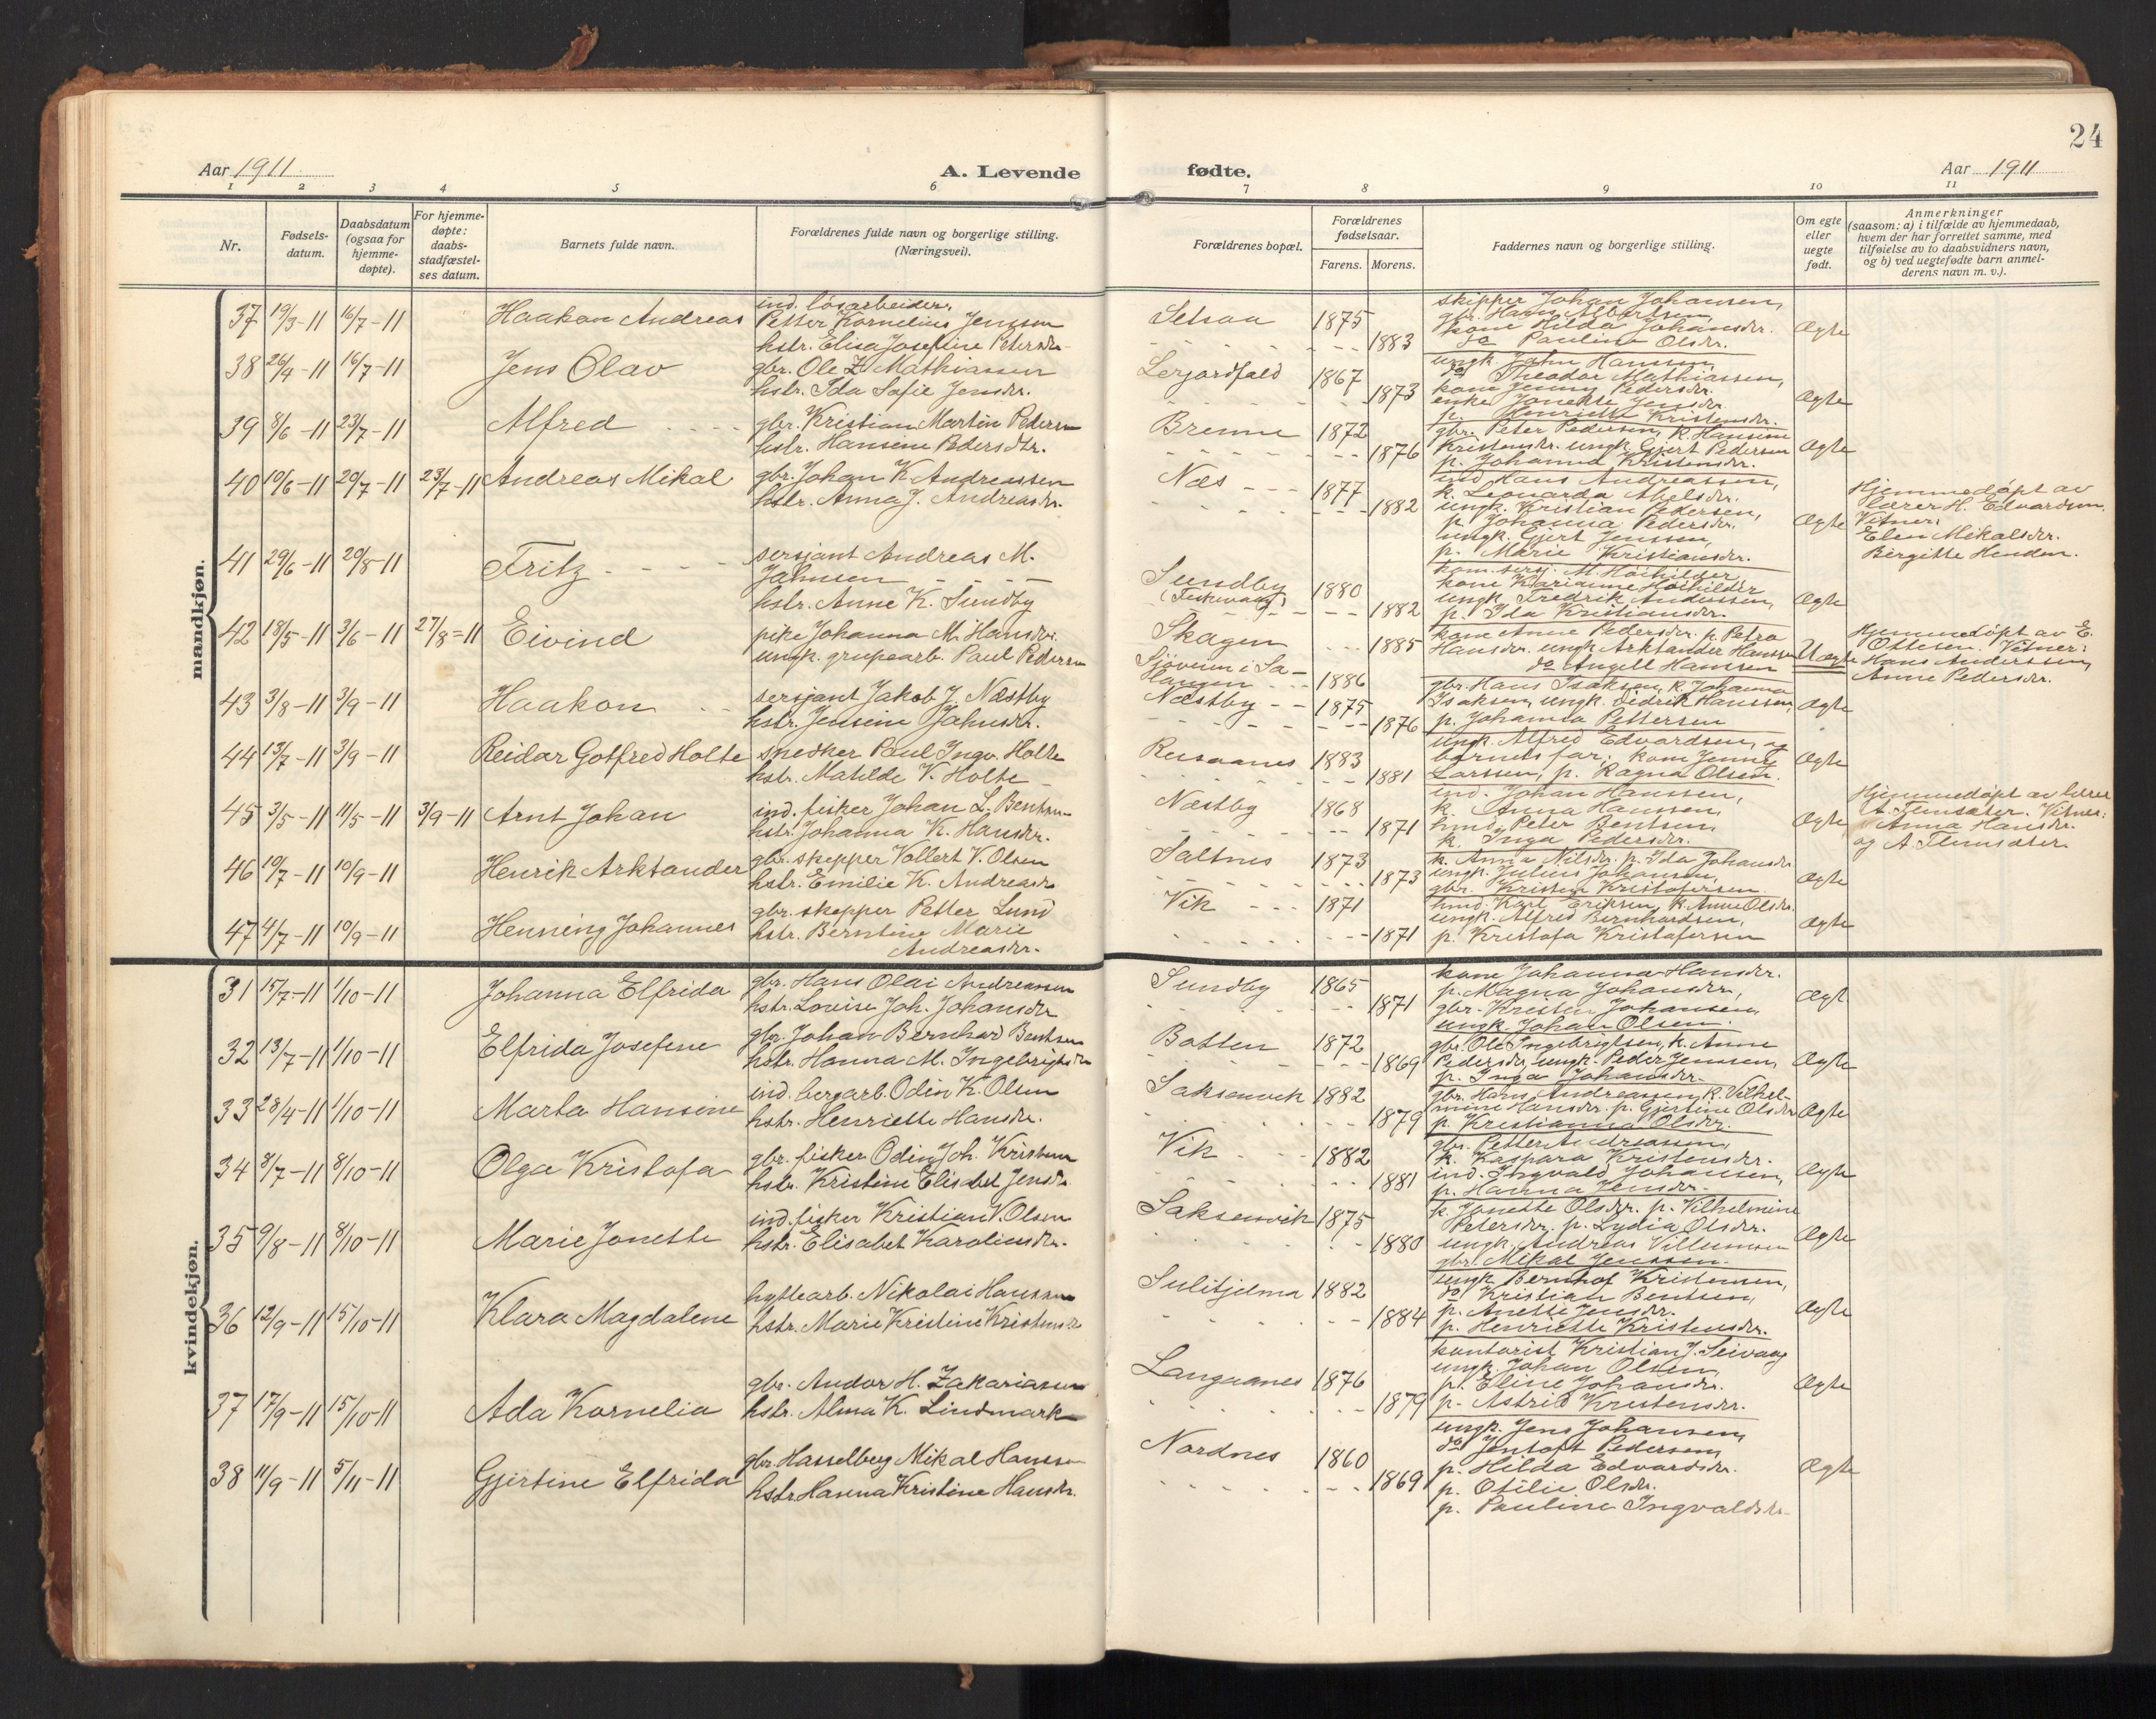 24
Aar 1911
A. Levende
fødte.
Aar 1911
1 2 3 4 5 6 7 8 9 10 11
Nr.
Fødsels-
datum.
Daabsdatum
(ogsaa for
hjemme-
døpte).
For hjemme-
døpte:
daabs-
stadfæstel-
ses datum.
Barnets fulde navn.
Forældrenes fulde navn og borgerlige stilling.
(Næringsvei).
Forældrenes bopæl.
Forældrenes
fødselsaar.
Farens. Morens.
Faddernes navn og borgerlige stilling.
Om egte
eller
uegte
født.
Anmerkninger
(saasom: a) i tilfælde av hjemmedaab,
hvem der har forrettet samme, med
tilføielse av to daabsvidners navn,
og b) ved uegtefødte barn anmel-
derens navn m. v.).
mandkjøn.
37 19/3-11 16/7-11 Haakon Andreas
ind. løsarbeider,
Petter Kornelius Jenssen
hstr. Elisa Josefine Petersdr.
Setsaa 1875 1883
skipper Johan Johansen,
gbr. Hans Albertsen,
kone Hilda Johansdr.
do Pauline Olsdr.
Ægte
38 26/4-11 16/7-11 Jens Olav
gbr. Ole Z. Mathiassen
hstr. Ida Sofie Jensdr.
Lerjordfald 1867 1873
ungk. Jahn Hanssen,
do Theodor Mathiassen,
kone Jenny Pedersdr.
enke Jonette Jensdr.
p. Henriette Kristensdr.
Ægte
39 8/6-11 23/7-11 Alfred
gbr. Kristian Martin Pedersen
hstr. Hansine Pedersdtr.
Brenne 1872 1876
gbr. Peter Pedersen, k. Hansine
Kristensdr. ungk. Gjert Pedersen
p. Johanna Kristensdr.
Ægte
40 10/6-11 20/7-11 23/7-11 Andreas Mikal
gbr. Johan K. Andreassen
hstr. Anna J. Andreasdr.
Næs 1877 1882
ind. Hans Andreassen,
k. Leonarda Abelsdr.
ungk. Kristian Pedersen,
p. Johanna Pedersdr.
ungk. Gjert Jenssen,
p. Marie Kristiansdr.
Ægte
Hjemmedøpt av
lærer H. Edvardsen.
Vitner:
Elen Mikalsdr.
Birgitte Henden.
41 29/6-11 20/8-11 Fritz
sersjant Andreas M.
Jahnsen
hstr. Anne K. Sundby
Sundby 1880 1882
kom.sersj. M. Høihilder,
kone Karianne Høihilder
ungk. Fredrik Anderssen,
p. Ida Kristiansdr.
Ægte
42 18/5-11 3/6-11 27/8=11 Eivind
pike Johanna M. Hansdr.
ungk. grupearb. Paul Pedersen
Skagen 1885
Sjøvein i Sa-
1886
kone Anne Pedersdr. p. Petra
Hansdr. ungk. Arktander Hanssen
do Angell Hanssen
Uægte
Hjemmedøpt av E.
Ottesen. Vitner:
Hans Anderssen,
Anne Pedersdr.
43 3/8-11 3/9-11 Haakon
sersjant Jakob J. Næstby
hstr. Jensine Jahnsdr.
Næstby 1875 1876
gbr. Hans Isaksen, k. Johanna
Isaksen, ungk. Didrik Hanssen,
p. Johanna Pettersen
Ægte
44 13/7-11 3/9-11 Reidar Gotfred Holte
snedker Paul Ingv. Holte
hstr. Matilde V. Holte
Rusaanes 1883 1881
ungk. Alfred Edvardsen, og
barnets far; kone Jenny
Larssen, p. Ragna Olsen.
Ægte
45 3/5-11 11/5-11 3/9-11 Arnt Johan
ind. fisker Johan L. Bentsen
hstr. Johanna K. Hansdr.
Næstby 1868 1871
ind. Johan Hanssen,
k. Anna Hanssen,
hmd. Peter Bentsen,
k. Inga Pedersdr.
Ægte
Hjemmedøpt av lærer
A. Flemsæter. Vitner:
Anna Hansdr.
og A. Flemsæter.
46 10/7-11 10/9-11 Henrik Arktander
gbr. skipper Vollert V. Olsen
hstr. Emilie K. Andreasdr.
Saltnes 1873 1873
k. Anna Nilsdr. p. Ida Johansdr.
ungk. Julius Johansen,
gbr. Kristen Kristofersen
Ægte
47 4/7-11 10/9-11 Henning Johannes
gbr. skipper Petter Lund
hstr. Berntine Marie
Andreasdr.
Vik 1871 1871
hmd. Karl Eriksen, k. Anne Olsdr.
ungk. Alfred Bernhardsen,
p. Kristofa Kristofersen
Ægte
kvindekjøn.
31 15/7-11 1/10-11 Johanna Elfrida
gbr. Hans Olai Andreassen
hstr. Lovise Joh. Johansdr.
Sundby 1865 1871
kone Johanna Hansdr.
p. Magna Johansdr.,
gbr. Kristen Johansen,
ungk. Johan Olsen.
Ægt.
32 13/7-11 1/10-11 Elfrida Josefine
gbr. Johan Bernhard Bentsen
hstr. Hanna M. Ingebrigtsdr.
Botten 1872 1869
gbr. Ole Ingebrigtsen, k. Anne
Pedersdr. ungk. Peder Jenssen,
p. Inga Johansdr.
Ægte
33 28/4-11 1/10-11 Marta Hansine
ind. bergarb. Odin K. Olsen
hstr. Henriette Hansdr.
Saksenvik 1882 1879
gbr. Hans Andreassen, k. Vilhel-
mine Hansdr. p. Gjertine Olsdr.
p. Kristianna Olsdr.
Ægte
34 8/7-11 8/10-11 Olga Kristofa
gbr. fisker Odin Joh. Kristensen
hstr. Kristine Elisabet Jensdr.
Vik 1882 1881
gbr. Petter Andreassen,
k. Kaspara Kristensdr.
ind. Ingvald Johansen,
p. Hanna Jensdr.
Ægte
35 9/8-11 8/10-11 Marie Jonette
ind. fisker Kristian V. Olsen
hstr. Elisabet Karoliusdr.
Saksenvik 1875 1880
k. Jonette Olsdr. p. Vilhelmine
Petersdr. p. Lydia Olsdr.
ungk. Andreas Villumsen
gbr. Mikal Jenssen.
Ægte
36 12/9-11 15/10-11 Klara Magdalene
hyttearb. Nikolai Hanssen
hstr. Marie Kristine Kristensdr.
Sulitjelma 1882 1884
ungk. Bernhof Kristensen,
do Kristian Bentsen,
p. Anette Jensdr.
p. Henriette Kristensdr.
Ægte
37 17/9-11 15/10-11 Ada Kornelia
gbr. Andor H. Zakariassen
hstr. Alma K. Lindmark
Langaanes 1876 1879
kontorist Kristian J. Seivaag
ungk. Johan Olsen,
p. Eline Johansdr.
p. Astrid Kristensdr.
Ægte
38 11/9-11 5/11-11 Gjertine Elfrida
gbr. Hasselberg Mikal Hanssen
hstr. Hanna Kristine Hansdr.
Nordnes 1860 1869
ungk. Jens Johansen,
do Jentoft Pedersen,
p. Hilda Edvardsdr.
p. Otilie Olsdr.
p. Pauline Ingvaldsdr.
Ægte